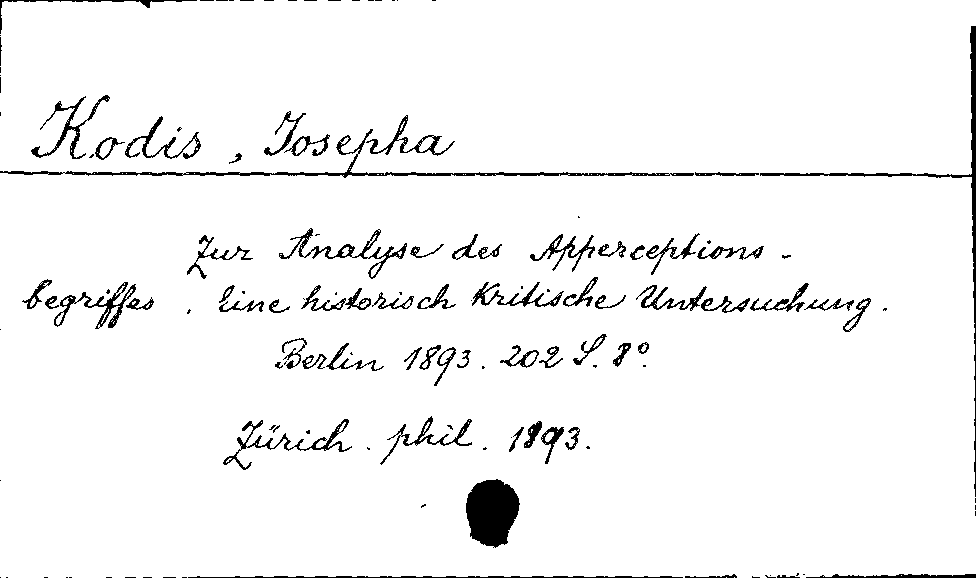 Kodis, Josepha
Zur Analyse des Apperceptions-
begriffes. Eine historisch kritische Untersuchung.
Berlin 1893. 202 S. 8°.
Zürich. phil. 1893.